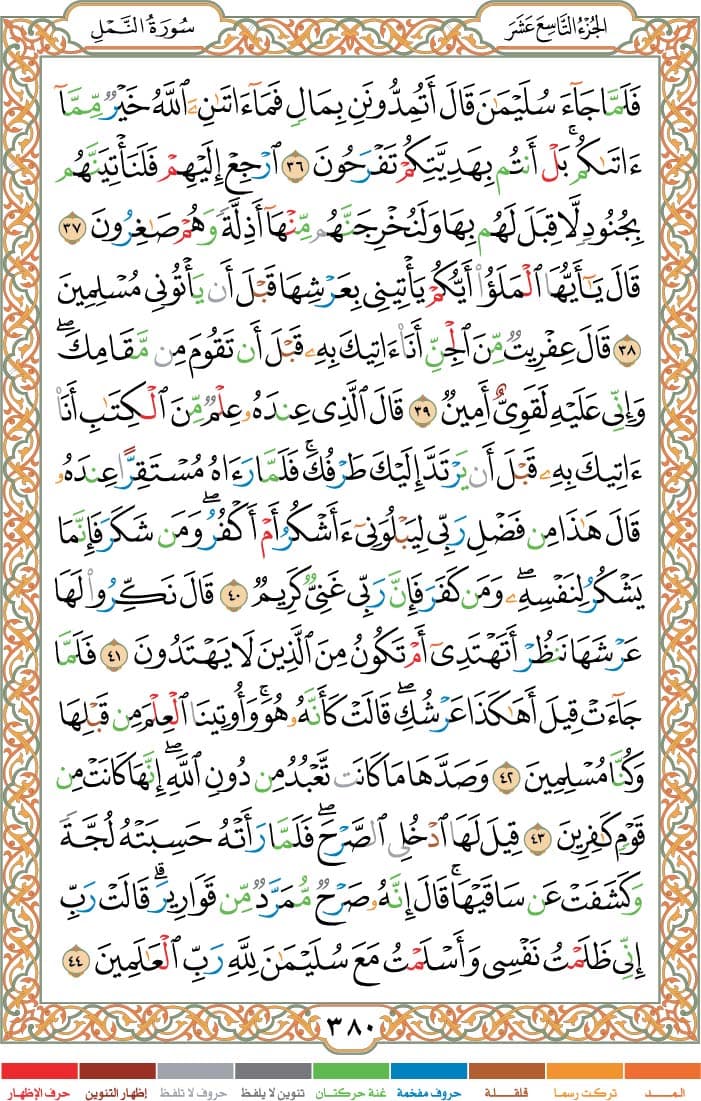 الجزء التاسع عشر
سورة النمل
فَلَمَّا جَآءَ سُلَيْمَٰنَ قَالَ أَتُمِدُّونَنِ بِمَالٍ فَمَآ ءَاتَىٰنِۦَ ٱللَّهُ خَيْرٌ مِّمَّآ
ءَاتَىٰكُم ۚ بَلْ أَنتُم بِهَدِيَّتِكُمْ تَفْرَحُونَ ٣٦ ٱرْجِعْ إِلَيْهِمْ فَلَنَأْتِيَنَّهُم
بِجُنُودٍ لَّا قِبَلَ لَهُم بِهَا وَلَنُخْرِجَنَّهُم مِّنْهَآ أَذِلَّةً وَهُمْ صَٰغِرُونَ ٣٧
قَالَ يَٰٓأَيُّهَا ٱلْمَلَؤُا۟ أَيُّكُمْ يَأْتِينِى بِعَرْشِهَا قَبْلَ أَن يَأْتُونِى مُسْلِمِينَ
٣٨ قَالَ عِفْرِيتٌ مِّنَ ٱلْجِنِّ أَنَا۠ ءَاتِيكَ بِهِۦ قَبْلَ أَن تَقُومَ مِن مَّقَامِكَ ۖ
وَإِنِّى عَلَيْهِ لَقَوِىٌّ أَمِينٌ ٣٩ قَالَ ٱلَّذِى عِندَهُۥ عِلْمٌ مِّنَ ٱلْكِتَٰبِ أَنَا۠
ءَاتِيكَ بِهِۦ قَبْلَ أَن يَرْتَدَّ إِلَيْكَ طَرْفُكَ ۚ فَلَمَّا رَءَاهُ مُسْتَقِرًّا عِندَهُۥ
قَالَ هَٰذَا مِن فَضْلِ رَبِّى لِيَبْلُوَنِىٓ ءَأَشْكُرُ أَمْ أَكْفُرُ ۖ وَمَن شَكَرَ فَإِنَّمَا
يَشْكُرُ لِنَفْسِهِۦ ۖ وَمَن كَفَرَ فَإِنَّ رَبِّى غَنِىٌّ كَرِيمٌ ٤٠ قَالَ نَكِّرُوا۟ لَهَا
عَرْشَهَا نَنظُرْ أَتَهْتَدِىٓ أَمْ تَكُونُ مِنَ ٱلَّذِينَ لَا يَهْتَدُونَ ٤١ فَلَمَّا
جَآءَتْ قِيلَ أَهَٰكَذَا عَرْشُكِ ۖ قَالَتْ كَأَنَّهُۥ هُوَ ۚ وَأُوتِينَا ٱلْعِلْمَ مِن قَبْلِهَا
وَكُنَّا مُسْلِمِينَ ٤٢ وَصَدَّهَا مَا كَانَت تَّعْبُدُ مِن دُونِ ٱللَّهِ ۖ إِنَّهَا كَانَتْ مِن
قَوْمٍ كَٰفِرِينَ ٤٣ قِيلَ لَهَا ٱدْخُلِى ٱلصَّرْحَ ۖ فَلَمَّا رَأَتْهُ حَسِبَتْهُ لُجَّةً
وَكَشَفَتْ عَن سَاقَيْهَا ۚ قَالَ إِنَّهُۥ صَرْحٌ مُّمَرَّدٌ مِّن قَوَارِيرَ ۗ قَالَتْ رَبِّ
إِنِّى ظَلَمْتُ نَفْسِى وَأَسْلَمْتُ مَعَ سُلَيْمَٰنَ لِلَّهِ رَبِّ ٱلْعَٰلَمِينَ ٤٤
٣٨٠
المــــد تركت رسما قلقلة حروف مفخمة غنة حركتان تنوين لا يلفظ حروف لا تلفظ إظهار التنوين حرف الإظهار